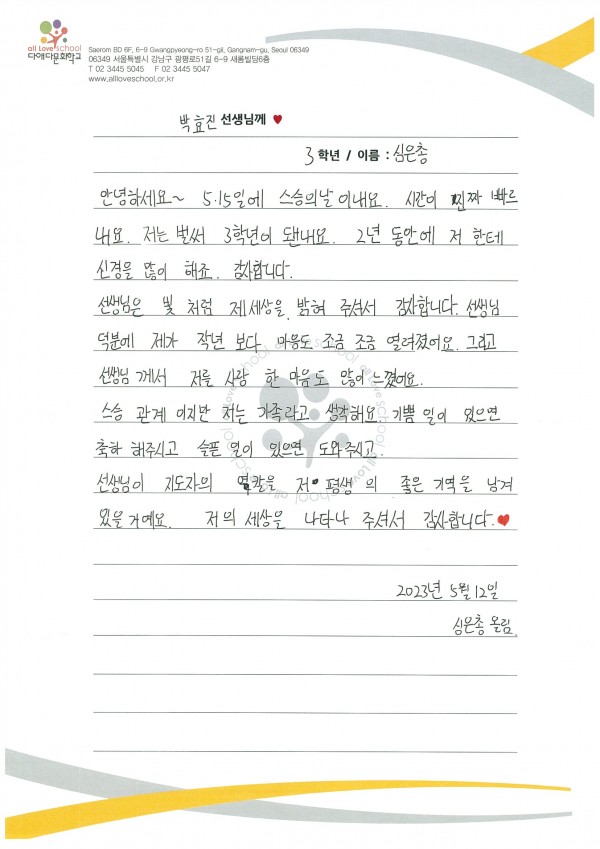 all Love school
다애다문화학교
Saerom BD 6F, 6-9 Gwangpyeong-ro 51-gil, Gangnam-gu, Seoul 06349
06349 서울특별시 강남구 광평로51길 6-9 새롬빌딩6층
T 02 3445 5045 F 02 3445 5047
www.allloveschool.or.kr
박효진 선생님께 ♥
3학년 / 이름 : 심은총
안녕하세요~ 5.15일에 스승의날 이내요. 시간이 찐짜 빠르
내요. 저는 벌써 3학년이 됀내요. 2년 동안에 저 한테
신경을 많이 해죠. 감사합니다.
선생님은 빛 처럼 제세상을 밝혀 주셔서 감사합니다. 선생님
덕분에 제가 작년 보다 마음도 조금 조금 열려졌어요. 그리고
선생님 께서 저를 사랑 한 마음도 많이 느꼈어요.
스승 관계 이지만 저는 가족라고 생각해요. 기쁨 일이 있으면
축하 해주시고 슬픈 일이 있으면 도와주시고.
선생님이 지도자의 역할을 저 평생의 좋은 기역을 남겨
있을거예요. 저의 세상을 나타나 주셔서 감사합니다. ♥
2023년 5월 12일
심은총 올림.
all Love school all Love school all Love school